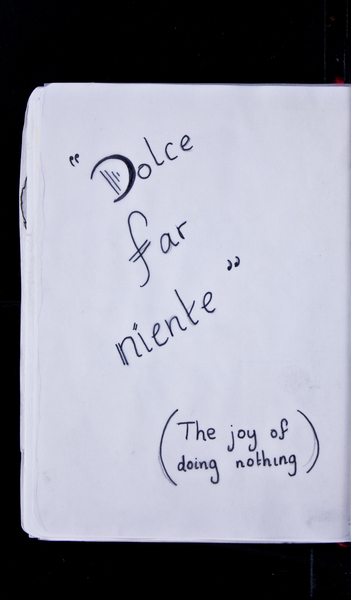 "Dolce
far
niente"
(The joy of
doing nothing)